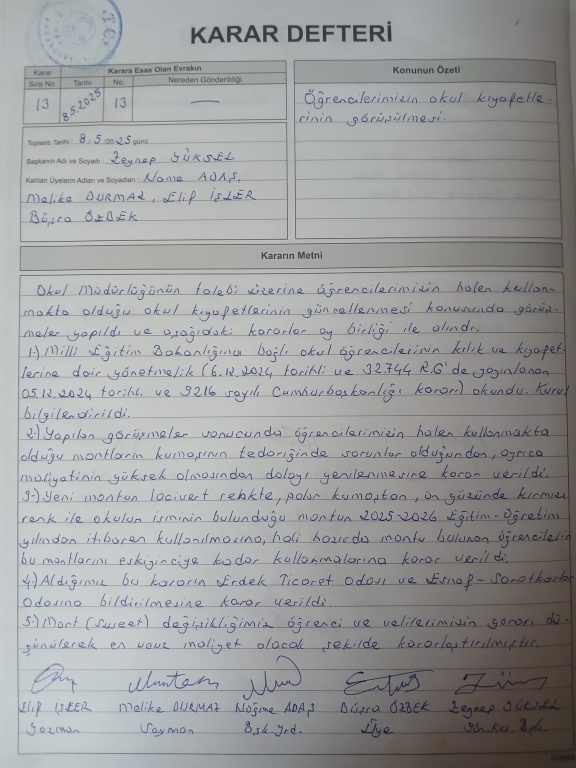 T.C.
KARAR DEFTERİ
Karar
Karara Esas Olan Evrakın
Sıra No.
Tarihi
No.
Nereden Gönderildiği
13
8.5.2025
13
—
Konunun Özeti
Öğrencilerimizin okul kıyafetle-
rinin görüşülmesi.
Toplantı Tarihi : 8/5/2025 günü
Başkanın Adı ve Soyadı : Zeynep YÜKSEL
Katılan Üyelerin Adları ve Soyadları : Name ADAŞ,
Melike DURMAZ, Elif İŞLER
Büşra ÖZBEK
Kararın Metni
Okul Müdürlüğünün talebi üzerine öğrencilerimizin halen kullan-
makta olduğu okul kıyafetlerinin güncellenmesi konusunda görüş-
meler yapıldı ve aşağıdaki kararlar oy birliği ile alındı.
1-) Milli Eğitim Bakanlığına bağlı okul öğrencilerinin kılık ve kıyafet-
lerine dair yönetmelik (6.12.2024 tarihli ve 32744 R.G' de yayınlanan
05.12.2024 tarihli ve 9216 sayılı Cumhurbaşkanlığı kararı) okundu. Kurul
bilgilendirildi.
2-) Yapılan görüşmeler sonucunda öğrencilerimizin halen kullanmakta
olduğu montların kumaşının tedariğinde sorunlar olduğundan, ayrıca
maliyetinin yüksek olmasından dolayı yenilenmesine karar verildi.
3-) Yeni montun lacivert renkte, polar kumaştan, ön yüzünde kırmızı
renk ile okulun isminin bulunduğu montun 2025-2026 Eğitim-Öğretim
yılından itibaren kullanılmasına, hali hazırda montu bulunan öğrencilerin
bu montlarını eskiyinciye kadar kullanmalarına karar verildi.
4-) Aldığımız bu kararın Erdek Ticaret Odası ve Esnaf-Sanatkarlar
Odasına bildirilmesine karar verildi.
5-) Mont (sweet) değişikliğimiz öğrenci ve velilerimizin yararı dü-
şünülerek en uygun maliyet olacak şekilde kararlaştırılmıştır.
Elif İŞLER Melike DURMAZ Nağme ADAŞ Büşra ÖZBEK Zeynep YÜKSEL
Yazman Sayman Bşk. Yrd. Üye Yön. Kur. Bşk.